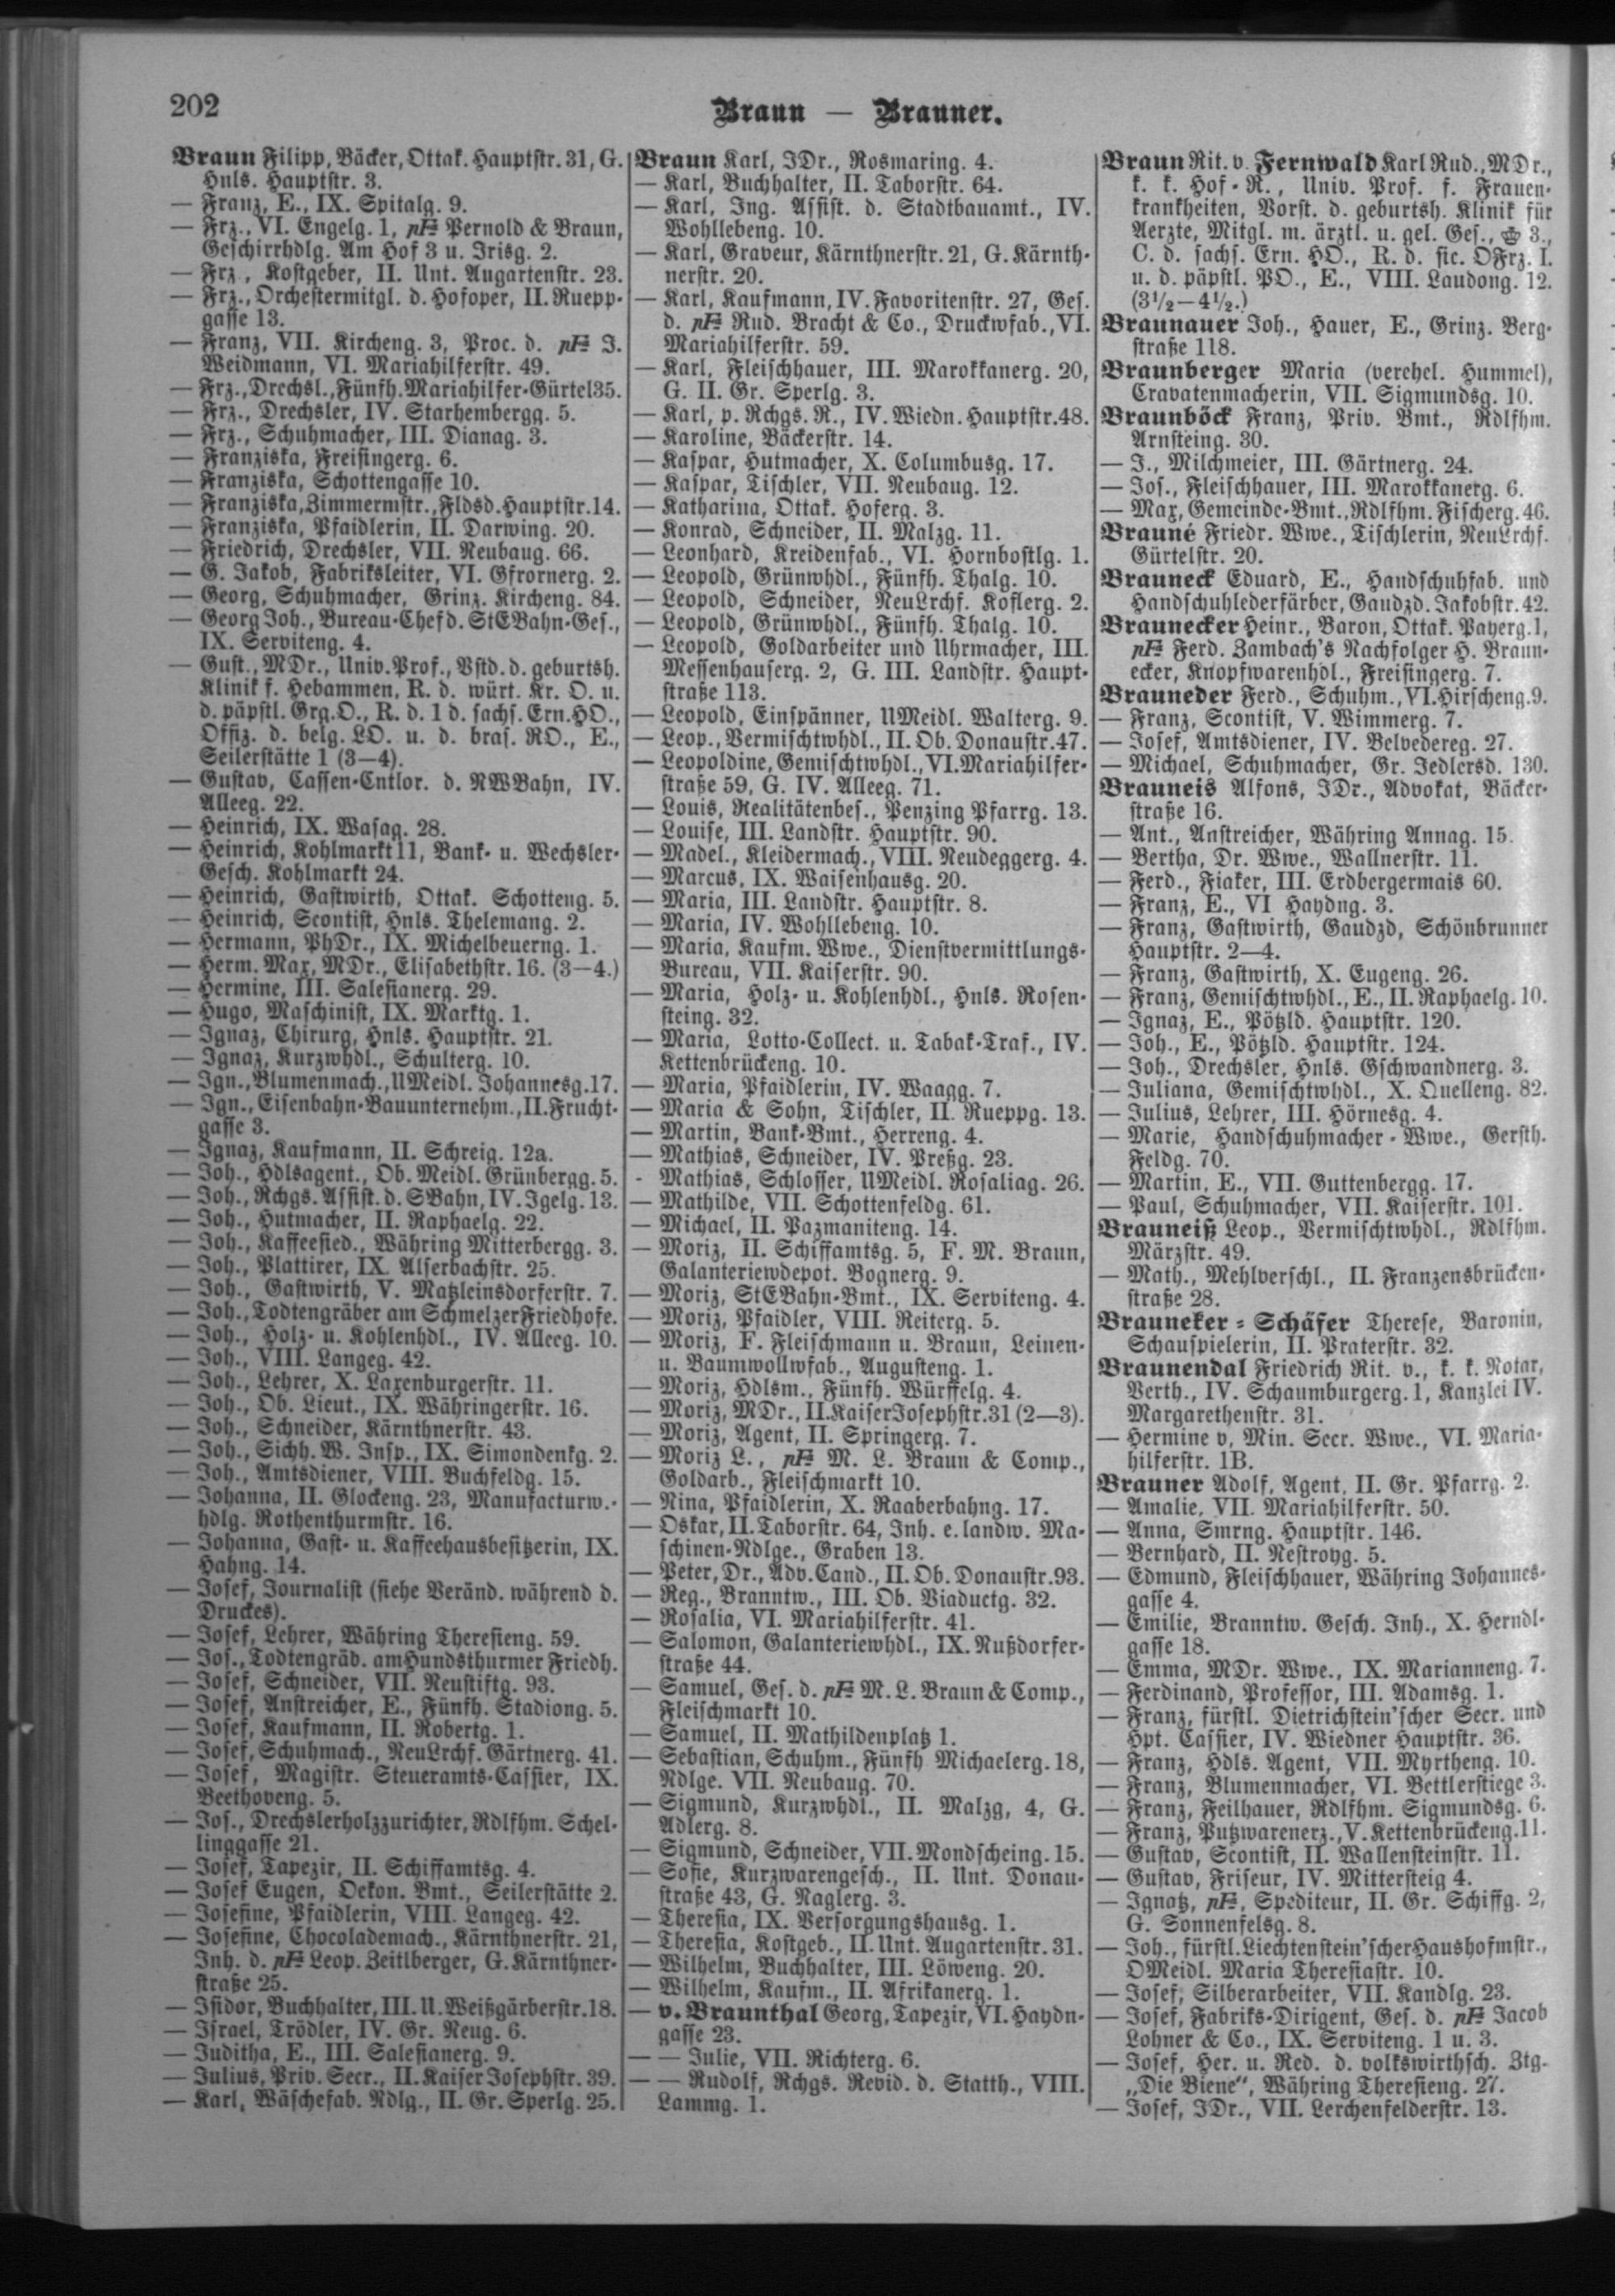 202
Braun — Brauner.
Braun Filipp, Bäcker, Ottak. Hauptstr. 31, G.
Hnls. Hauptstr. 3.
— Franz, E., IX. Spitalg. 9.
— Frz., VI. Engelg. 1, Pernold & Braun,
Geschirrhdlg. Am Hof 3 u. Irisg. 2.
— Frz., Kostgeber, II. Unt. Augartenstr. 23.
— Frz., Orchestermitgl. d. Hofoper, II. Ruepp-
gasse 13.
— Franz, VII. Kircheng. 3, Proc. d. J.
Weidmann, VI. Mariahilferstr. 49.
— Frz., Drechsl., Fünfh. Mariahilfer-Gürtel 35.
— Frz., Drechsler, IV. Starhembergg. 5.
— Frz., Schuhmacher, III. Dianag. 3.
— Franziska, Freisingerg. 6.
— Franziska, Schottengasse 10.
— Franziska, Zimmermstr., Fldsd. Hauptstr. 14.
— Franziska, Pfaidlerin, II. Darwing. 20.
— Friedrich, Drechsler, VII. Neubaug. 66.
— G. Jakob, Fabriksleiter, VI. Gfrornerg. 2.
— Georg, Schuhmacher, Grinz. Kircheng. 84.
— Georg Joh., Bureau-Chef d. StEBahn-Ges.,
IX. Serviteng. 4.
— Gust., MDr., Univ. Prof., Vstd. d. geburtsh.
Klinik f. Hebammen, R. d. würt. Kr. O. u.
d. päpstl. Grg. O., R. d. 1 d. sachs. Ern. HO.,
Offiz. d. belg. LO. u. d. bras. RO., E.,
Seilerstätte 1 (3—4).
— Gustav, Cassen-Cntlor. d. NWBahn, IV.
Alleeg. 22.
— Heinrich, IX. Wasag. 28.
— Heinrich, Kohlmarkt 11, Bank- u. Wechsler-
Gesch. Kohlmarkt 24.
— Heinrich, Gastwirth, Ottak. Schotteng. 5.
— Heinrich, Scontist, Hnls. Thelemang. 2.
— Hermann, PhDr., IX. Michelbeuerng. 1.
— Herm. Max, MDr., Elisabethstr. 16. (3—4.)
— Hermine, III. Salesianerg. 29.
— Hugo, Maschinist, IX. Marktg. 1.
— Ignaz, Chirurg, Hnls. Hauptstr. 21.
— Ignaz, Kurzwhdl., Schulterg. 10.
— Ign., Blumenmach., UMeidl. Johannesg. 17.
— Ign., Eisenbahn-Bauunternehm., II. Frucht-
gasse 3.
— Ignaz, Kaufmann, II. Schreig. 12a.
— Joh., Hdlsagent., Ob. Meidl. Grünbergg. 5.
— Joh., Rchgs. Assist. d. SBahn, IV. Igelg. 13.
— Joh., Hutmacher, II. Raphaelg. 22.
— Joh., Kaffeesied., Währing Mitterbergg. 3.
— Joh., Plattirer, IX. Alserbachstr. 25.
— Joh., Gastwirth, V. Matzleinsdorferstr. 7.
— Joh., Todtengräber am Schmelzer Friedhofe.
— Joh., Holz- u. Kohlenhdl., IV. Alleeg. 10.
— Joh., VIII. Langeg. 42.
— Joh., Lehrer, X. Laxenburgerstr. 11.
— Joh., Ob. Lieut., IX. Währingerstr. 16.
— Joh., Schneider, Kärnthnerstr. 43.
— Joh., Sichh. W. Insp., IX. Simondenkg. 2.
— Joh., Amtsdiener, VIII. Buchfeldg. 15.
— Johanna, II. Glockeng. 23, Manufacturw.-
hdlg. Rothenthurmstr. 16.
— Johanna, Gast- u. Kaffeehausbesitzerin, IX.
Hahng. 14.
— Josef, Journalist (siehe Veränd. während d.
Druckes).
— Josef, Lehrer, Währing Theresieng. 59.
— Jos., Todtengräd. am Hundsthurmer Friedh.
— Josef, Schneider, VII. Neustiftg. 93.
— Josef, Anstreicher, E., Fünfh. Stadiong. 5.
— Josef, Kaufmann, II. Robertg. 1.
— Josef, Schuhmach., NeuLrchf. Gärtnerg. 41.
— Josef, Magistr. Steueramts-Cassier, IX.
Beethoveng. 5.
— Jos., Drechslerholzzurichter, Rdlfhm. Schel-
linggasse 21.
— Josef, Tapezir, II. Schiffamtsg. 4.
— Josef Eugen, Oekon. Bmt., Seilerstätte 2.
— Josefine, Pfaidlerin, VIII. Langeg. 42.
— Josefine, Chocolademach., Kärnthnerstr. 21,
Inh. d. Leop. Zeitlberger, G. Kärnthner-
straße 25.
— Isidor, Buchhalter, III. U. Weißgärberstr. 18.
— Israel, Trödler, IV. Gr. Neug. 6.
— Juditha, E., III. Salesianerg. 9.
— Julius, Priv. Secr., II. Kaiser Josephstr. 39.
— Karl, Wäschefab. Ndlg., II. Gr. Sperlg. 25.
Braun Karl, JDr., Rosmaring. 4.
— Karl, Buchhalter, II. Taborstr. 64.
— Karl, Ing. Assist. d. Stadtbauamt., IV.
Wohllebeng. 10.
— Karl, Graveur, Kärnthnerstr. 21, G. Kärnth-
nerstr. 20.
— Karl, Kaufmann, IV. Favoritenstr. 27, Ges.
d. Rud. Bracht & Co., Druckwfab., VI.
Mariahilferstr. 59.
— Karl, Fleischhauer, III. Marokkanerg. 20,
G. II. Gr. Sperlg. 3.
— Karl, p. Rchgs. R., IV. Wiedn. Hauptstr. 48.
— Karoline, Bäckerstr. 14.
— Kaspar, Hutmacher, X. Columbusg. 17.
— Kaspar, Tischler, VII. Neubaug. 12.
— Katharina, Ottak. Hoferg. 3.
— Konrad, Schneider, II. Malzg. 11.
— Leonhard, Kreidenfab., VI. Hornbostlg. 1.
— Leopold, Grünwhdl., Fünfh. Thalg. 10.
— Leopold, Schneider, NeuLrchf. Koflerg. 2.
— Leopold, Grünwhdl., Fünfh. Thalg. 10.
— Leopold, Goldarbeiter und Uhrmacher, III.
Messenhauserg. 2, G. III. Landstr. Haupt-
straße 113.
— Leopold, Einspänner, UMeidl. Walterg. 9.
— Leop., Vermischtwhdl., II. Ob. Donaustr. 47.
— Leopoldine, Gemischtwhdl., VI. Mariahilfer-
straße 59, G. IV. Alleeg. 71.
— Louis, Realitätenbes., Penzing Pfarrg. 13.
— Louise, III. Landstr. Hauptstr. 90.
— Madel., Kleidermach., VIII. Neudeggerg. 4.
— Marcus, IX. Waisenhausg. 20.
— Maria, III. Landstr. Hauptstr. 8.
— Maria, IV. Wohllebeng. 10.
— Maria, Kaufm. Wwe., Dienstvermittlungs-
Bureau, VII. Kaiserstr. 90.
— Maria, Holz- u. Kohlenhdl., Hnls. Rosen-
steing. 32.
— Maria, Lotto-Collect. u. Tabak-Traf., IV.
Kettenbrückeng. 10.
— Maria, Pfaidlerin, IV. Waagg. 7.
— Maria & Sohn, Tischler, II. Rueppg. 13.
— Martin, Bank-Bmt., Herreng. 4.
— Mathias, Schneider, IV. Preßg. 23.
- Mathias, Schlosser, UMeidl. Rosaliag. 26.
— Mathilde, VII. Schottenfeldg. 61.
— Michael, II. Pazmaniteng. 14.
— Moriz, II. Schiffamtsg. 5, F. M. Braun,
Galanteriewdepot. Bognerg. 9.
— Moriz, StEBahn-Bmt., IX. Serviteng. 4.
— Moriz, Pfaidler, VIII. Reiterg. 5.
— Moriz, F. Fleischmann u. Braun, Leinen-
u. Baumwollwfab., Augusteng. 1.
— Moriz, Hdlsm., Fünfh. Würffelg. 4.
— Moriz, MDr., II. Kaiser Josephstr. 31 (2—3).
— Moriz, Agent, II. Springerg. 7.
— Moriz L., M. L. Braun & Comp.,
Goldarb., Fleischmarkt 10.
— Nina, Pfaidlerin, X. Raaberbahng. 17.
— Oskar, II. Taborstr. 64, Inh. e. landw. Ma-
schinen-Ndlge., Graben 13.
— Peter, Dr., Adv. Cand., II. Ob. Donaustr. 93.
— Reg., Branntw., III. Ob. Viaductg. 32.
— Rosalia, VI. Mariahilferstr. 41.
— Salomon, Galanteriewhdl., IX. Nußdorfer-
straße 44.
— Samuel, Ges. d. M. L. Braun & Comp.,
Fleischmarkt 10.
— Samuel, II. Mathildenplatz 1.
— Sebastian, Schuhm., Fünfh Michaelerg. 18,
Ndlge. VII. Neubaug. 70.
— Sigmund, Kurzwhdl., II. Malzg, 4, G.
Adlerg. 8.
— Sigmund, Schneider, VII. Mondscheing. 15.
— Sofie, Kurzwarengesch., II. Unt. Donau-
straße 43, G. Naglerg. 3.
— Theresia, IX. Versorgungshausg. 1.
— Theresia, Kostgeb., II. Unt. Augartenstr. 31.
— Wilhelm, Buchhalter, III. Löweng. 20.
— Wilhelm, Kaufm., II. Afrikanerg. 1.
— v. Braunthal Georg, Tapezir, VI. Haydn-
gasse 23.
— — Julie, VII. Richterg. 6.
— — Rudolf, Rchgs. Revid. d. Statth., VIII.
Lammg. 1.
Braun Rit. v. Fernwald Karl Rud., MDr.,
k. k. Hof-R., Univ. Prof. f. Frauen-
krankheiten, Vorst. d. geburtsh. Klinik für
Aerzte, Mitgl. m. ärztl. u. gel. Ges., 3.,
C. d. sachs. Ern. HO., R. d. sic. OFrz. I.
u. d. päpstl. PO., E., VIII. Laudong. 12.
(3½—4½.)
Braunauer Joh., Hauer, E., Grinz. Berg-
straße 118.
Braunberger Maria (verehel. Hummel),
Cravatenmacherin, VII. Sigmundsg. 10.
Braunböck Franz, Priv. Bmt., Rdlfhm.
Arnsteing. 30.
— J., Milchmeier, III. Gärtnerg. 24.
— Jos., Fleischhauer, III. Marokkanerg. 6.
— Max, Gemeinde-Bmt., Rdlfhm. Fischerg. 46.
Brauné Friedr. Wwe., Tischlerin, NeuLrchf.
Gürtelstr. 20.
Brauneck Eduard, E., Handschuhfab. und
Handschuhlederfärber, Gaudzd. Jakobstr. 42.
Braunecker Heinr., Baron, Ottak. Payerg. 1,
Ferd. Zambach's Nachfolger H. Braun-
ecker, Knopfwarenhdl., Freisingerg. 7.
Brauneder Ferd., Schuhm., VI. Hirscheng. 9.
— Franz, Scontist, V. Wimmerg. 7.
— Josef, Amtsdiener, IV. Belvedereg. 27.
— Michael, Schuhmacher, Gr. Jedlersd. 130.
Brauneis Alfons, JDr., Advokat, Bäcker-
straße 16.
— Ant., Anstreicher, Währing Annag. 15.
— Bertha, Dr. Wwe., Wallnerstr. 11.
— Ferd., Fiaker, III. Erdbergermais 60.
— Franz, E., VI Haydng. 3.
— Franz, Gastwirth, Gaudzd, Schönbrunner
Hauptstr. 2—4.
— Franz, Gastwirth, X. Eugeng. 26.
— Franz, Gemischtwhdl., E., II. Raphaelg. 10.
— Ignaz, E., Pötzld. Hauptstr. 120.
— Joh., E., Pötzld. Hauptstr. 124.
— Joh., Drechsler, Hnls. Gschwandnerg. 3.
— Juliana, Gemischtwhdl., X. Quelleng. 82.
— Julius, Lehrer, III. Hörnesg. 4.
— Marie, Handschuhmacher-Wwe., Gersth.
Feldg. 70.
— Martin, E., VII. Guttenbergg. 17.
— Paul, Schuhmacher, VII. Kaiserstr. 101.
Brauneiß Leop., Vermischtwhdl., Rdlfhm.
Märzstr. 49.
— Math., Mehlverschl., II. Franzensbrücken-
straße 28.
Brauneker-Schäfer Therese, Baronin,
Schauspielerin, II. Praterstr. 32.
Braunendal Friedrich Rit. v., k. k. Notar,
Verth., IV. Schaumburgerg. 1, Kanzlei IV.
Margarethenstr. 31.
— Hermine v, Min. Secr. Wwe., VI. Maria-
hilferstr. 1B.
Brauner Adolf, Agent, II. Gr. Pfarrg. 2.
— Amalie, VII. Mariahilferstr. 50.
— Anna, Smrng. Hauptstr. 146.
— Bernhard, II. Nestroyg. 5.
— Edmund, Fleischhauer, Währing Johannes-
gasse 4.
— Emilie, Branntw. Gesch. Inh., X. Herndl-
gasse 18.
— Emma, MDr. Wwe., IX. Marianneng. 7.
— Ferdinand, Professor, III. Adamsg. 1.
— Franz, fürstl. Dietrichstein'scher Secr. und
Hpt. Cassier, IV. Wiedner Hauptstr. 36.
— Franz, Hdls. Agent, VII. Myrtheng. 10.
— Franz, Blumenmacher, VI. Bettlerstiege 3.
— Franz, Feilhauer, Rdlfhm. Sigmundsg. 6.
— Franz, Putzwarenerz., V. Kettenbrückeng. 11.
— Gustav, Scontist, II. Wallensteinstr. 11.
— Gustav, Friseur, IV. Mittersteig 4.
— Ignatz, Spediteur, II. Gr. Schiffg. 2,
G. Sonnenfelsg. 8.
— Joh., fürstl. Liechtenstein'scher Haushofmstr.,
OMeidl. Maria Theresiastr. 10.
— Josef, Silberarbeiter, VII. Kandlg. 23.
— Josef, Fabriks-Dirigent, Ges. d. Jacob
Lohner & Co., IX. Serviteng. 1 u. 3.
— Josef, Her. u. Red. d. volkswirthsch. Ztg.
„Die Biene", Währing Theresieng. 27.
— Josef, JDr., VII. Lerchenfelderstr. 13.